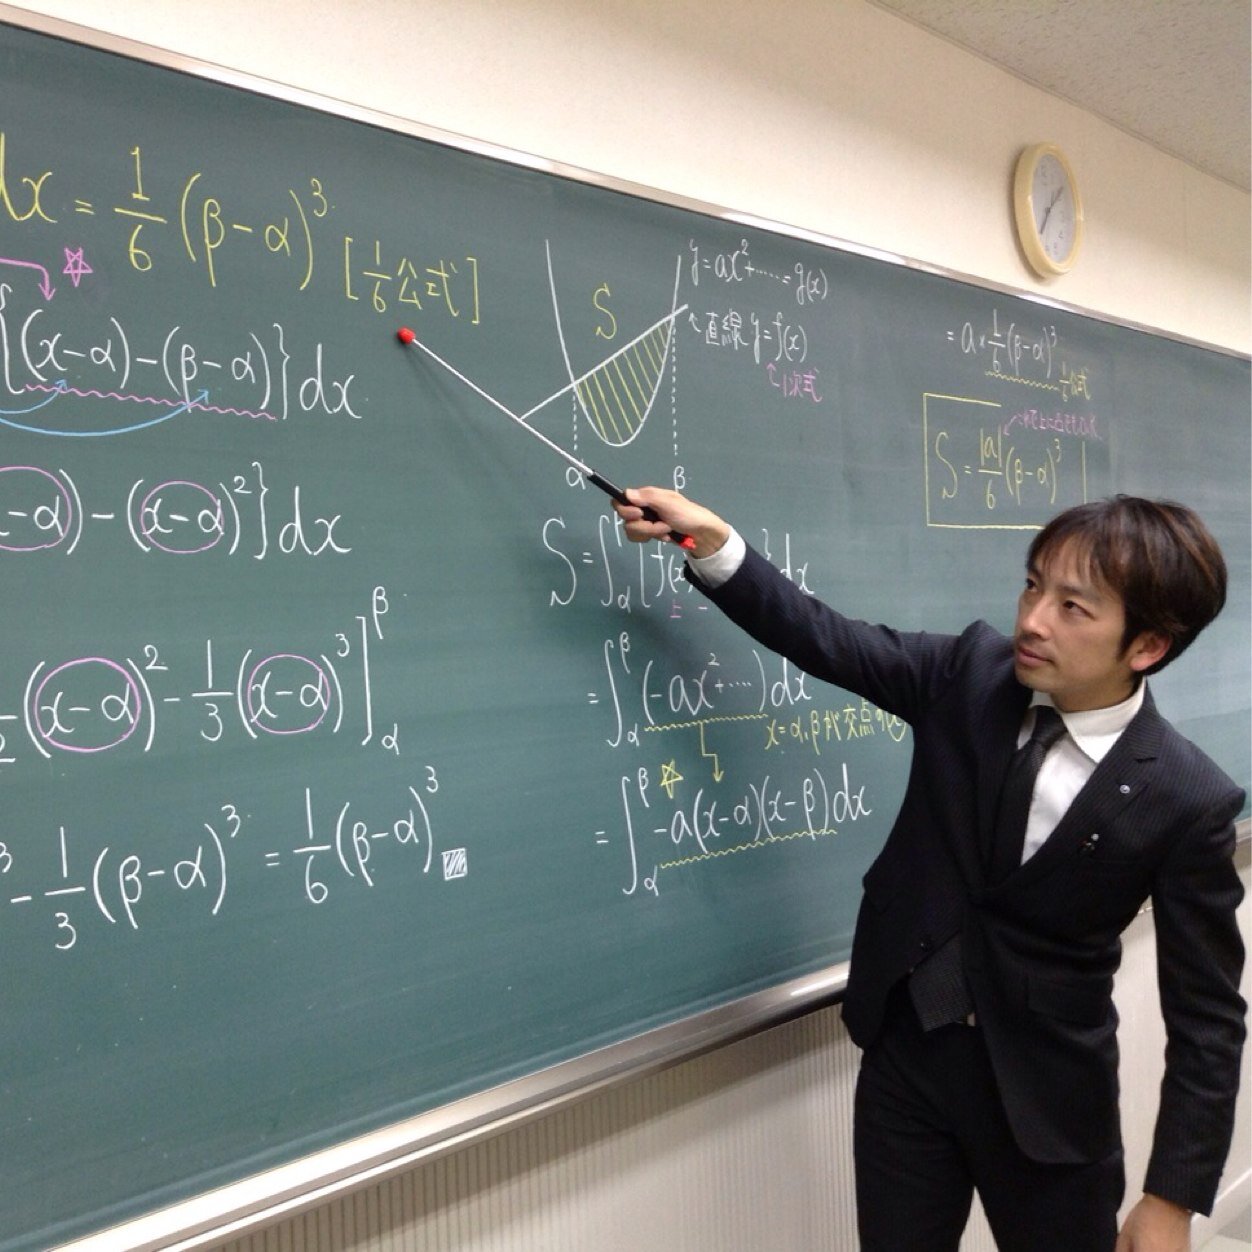 dx = 1/6 (β-α)³ [1/6公式]
{(x-α)-(β-α)}dx
-α)-(x-α)²}dx
(x-α)² - 1/3 (x-α)³]_α^β
- 1/3 (β-α)³ = 1/6 (β-α)³
S
y=ax²+……=g(x)
直線 y=f(x)
1次式
α β
S=∫_α^β [f(x) dx
上 -
=∫_α^β (-ax²+……)dx
x=α,β が交点の
=∫_α^β -a(x-α)(x-β)dx
=a×1/6(β-α)³
1/6公式
S=|a|/6(β-α)³